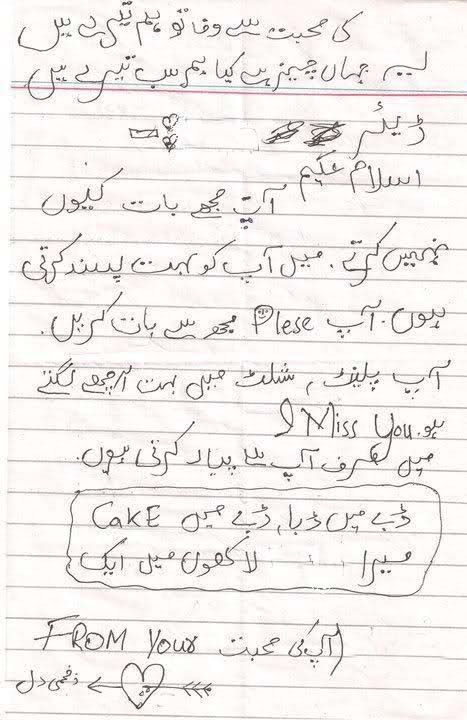 کی محبت سے وفا تو ہم تیرے ہیں
یہ جہاں چیز ہے کیا ہم سب تیرے ہیں
ڈیئر
اسلام علیکم
آپ مجھے بات کیوں
نہیں کرتے. میں آپ کو بہت پسند کرتی
ہوں. آپ Plese مجھ سے بات کریں.
آپ پلینٹ, شلٹ میں بہت اچھے لگتے
ہو. I Miss You
میں صرف آپ سے پیار کرتی ہوں.
ڈبے میں ڈبا, ڈبے میں CaKE
میرا لاکھوں میں ایک
آپ کی محبت FROM Your
زخمی دل